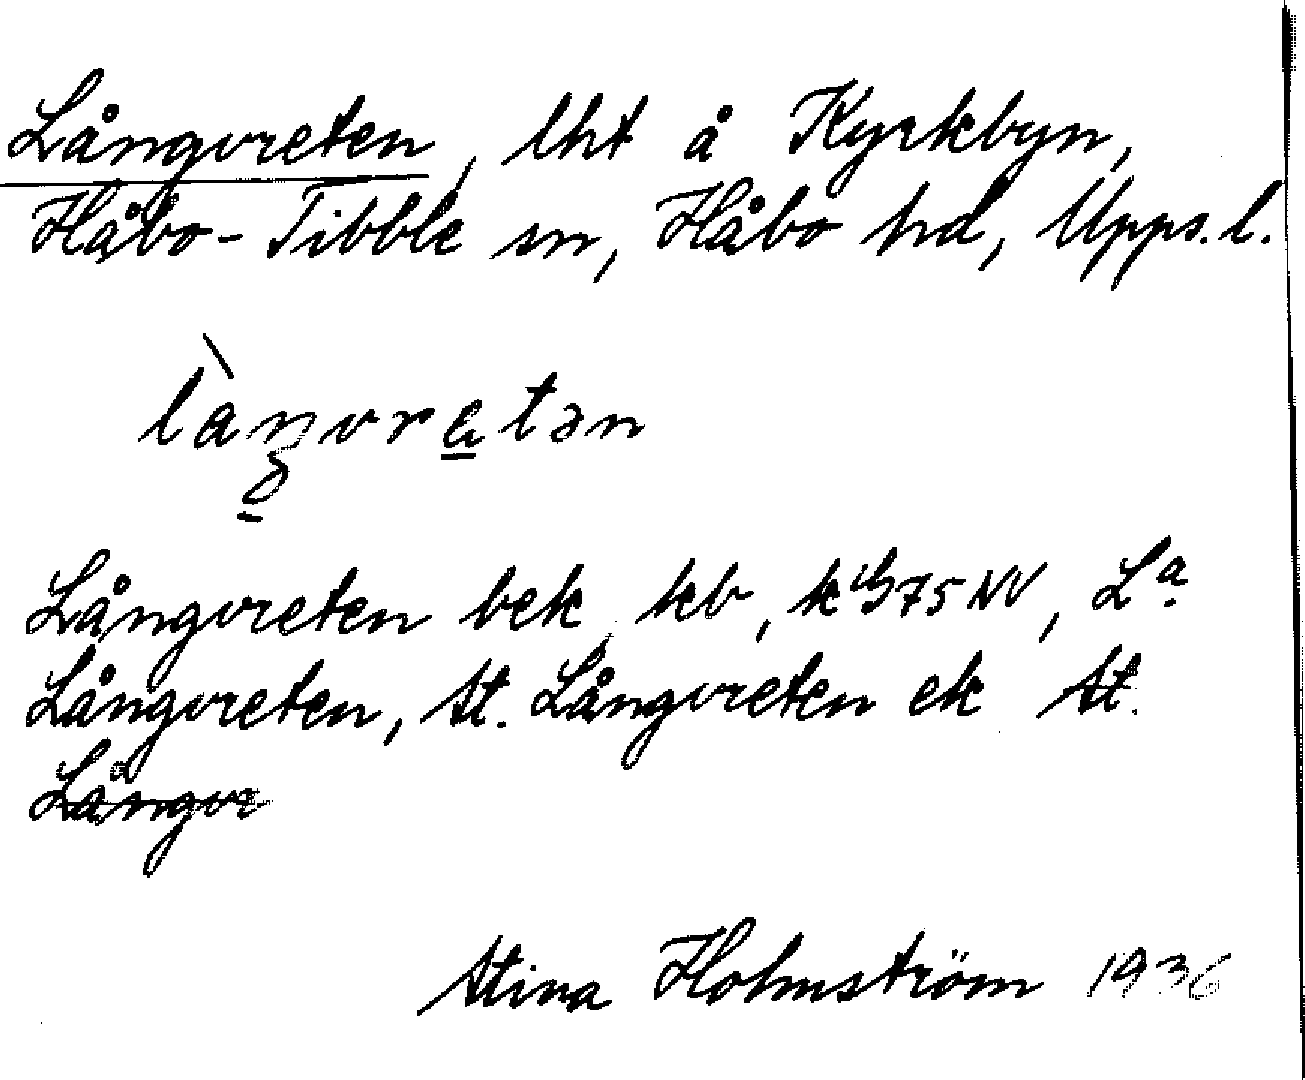 Långvreten, lht å Kyrkbyn,
Håbo-Tibble sn, Håbo hd, Upps. l.
Långvreten bek kb, 75 NV, La
Långvreten, St. Långvreten ek St.
Långvr
Stina Holmström 1936